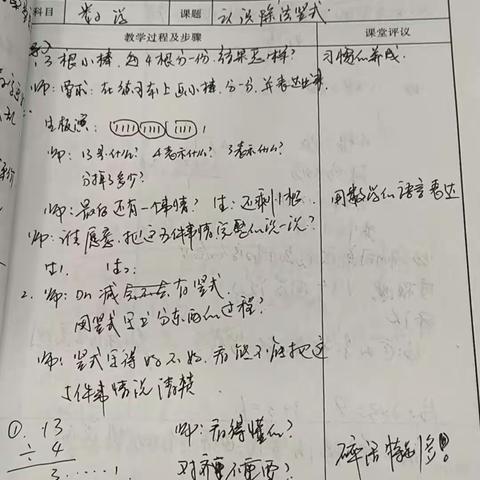 科目 数学 课题 认识除法竖式
教学过程及步骤 课堂评议
13根小棒,每4根分一份,结果怎样? 习惯的养成
师:要求:在练习本上画小棒,分一分,并表达出来.
生板演:
师:13是什么? 4表示什么? 3表示什么?
分掉了多少?
师:最后还有一个事情? 生:还剩1根. 用数学的语言表达
师:谁愿意把这5件事情完整的说一说?
生1. 生2.
2. 师:加减 有竖式.
用竖式写出分东西的过程?
师:竖式写得好不好,看能不能把这
5件事情说清楚
① 13 师:看得懂么?
÷ 4
3……1 对 不要? 碎活特别多!